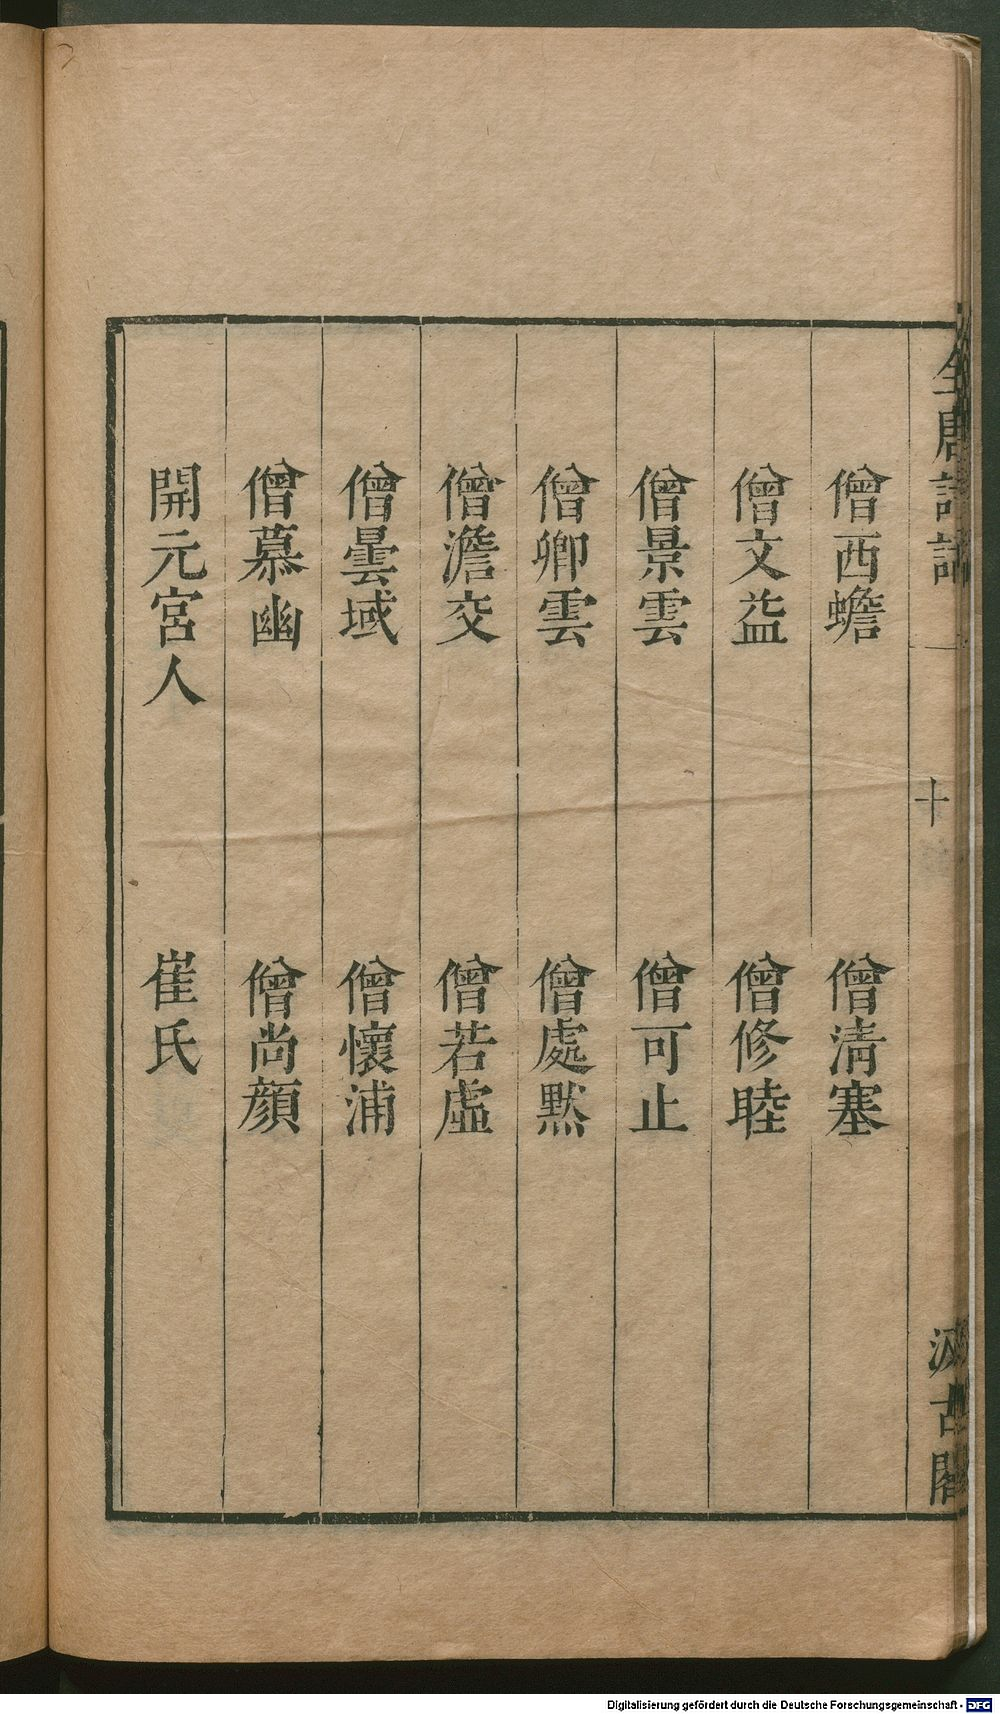 全唐詩話
十
汲古閣
僧西蟾　僧清塞
僧文益　僧修睦
僧景雲　僧可止
僧卿雲　僧處默
僧澹交　僧若虛
僧曇域　僧懷浦
僧慕幽　僧尚顏
開元宮人　崔氏
Digitalisierung gefördert durch die Deutsche Forschungsgemeinschaft - DFG